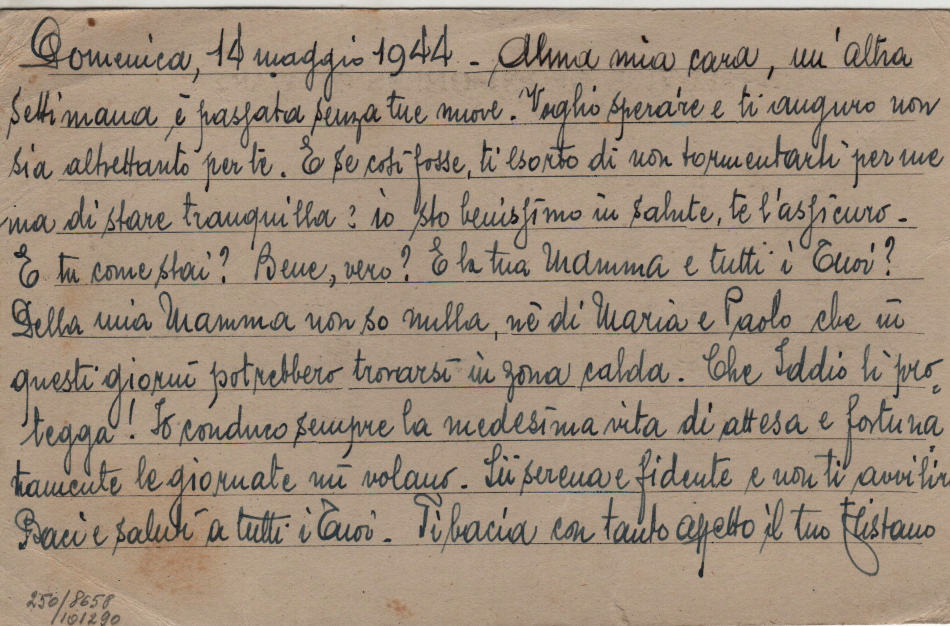 Domenica, 14 maggio 1944 - Alma mia cara, un'altra
settimana è passata senza tue nuove. Voglio sperare e ti auguro non
sia altrettanto per te. E se così fosse, ti esorto di non tormentarti per me
ma di stare tranquilla: io sto benissimo in salute, te l'assicuro.
E tu come stai? Bene, vero? E la tua Mamma e tutti i Tuoi?
Della mia Mamma non so nulla, nè di Maria e Paolo che in
questi giorni potrebbero trovarsi in zona calda. Che Iddio li pro=
tegga! Io conduco sempre la medesima vita di attesa e fortuna=
tamente le giornate mi volano. Sii serena e fidente e non ti avvilir
Baci e saluti a tutti i Tuoi. Ti bacia con tanto affetto il tuo
250/8658
/101290